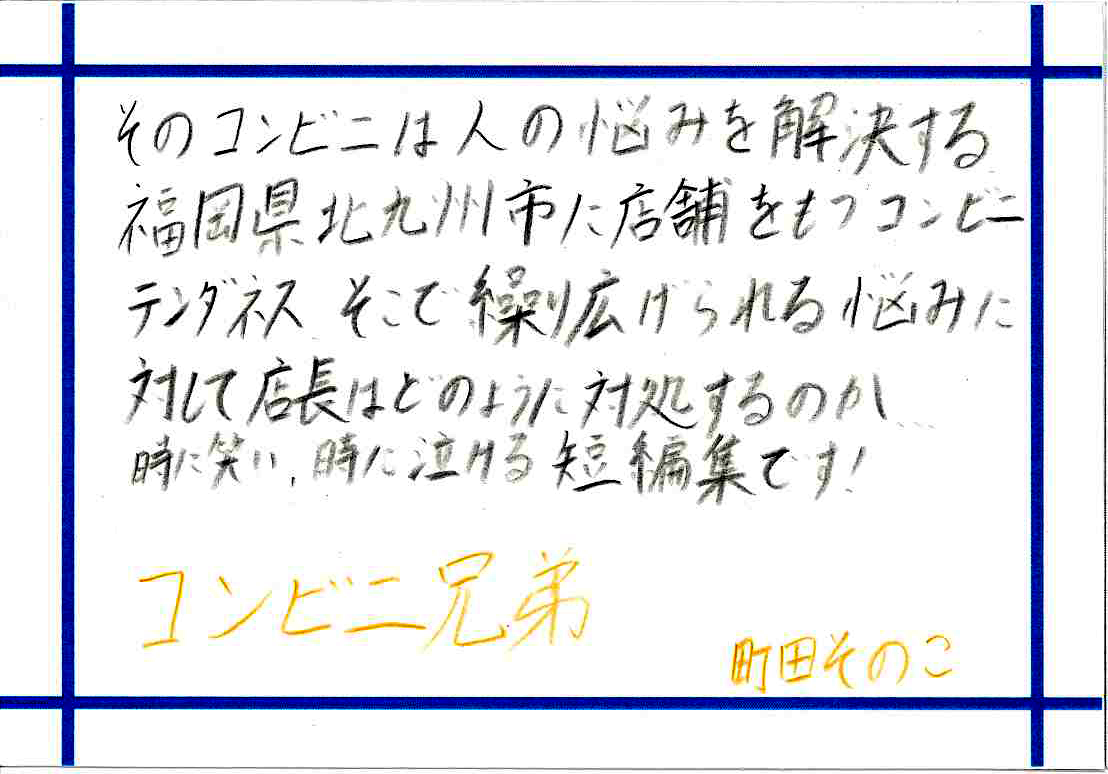 そのコンビニは人の悩みを解決する
福岡県北九州市に店舗をもつコンビニ
テンダネス そこで繰り広げられる悩みに
対して店長はどのように対処するのか…
時に笑い、時に泣ける短編集です!
コンビニ兄弟
町田そのこ